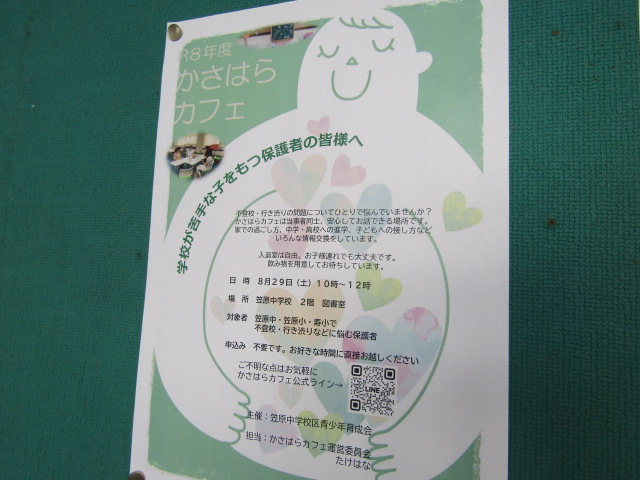 R8年度
かさはら
カフェ
学校が苦手な子をもつ保護者の皆様へ
不登校・行き渋りの問題についてひとりで悩んでいませんか?
かさはらカフェは当事者同士、安心してお話できる場所です。
家での過ごし方、中学・高校への進学、子どもへの接し方など
いろんな情報交換をしています。
入退室は自由。お子様連れでも大丈夫です。
飲み物を用意してお待ちしています。
日 時 8月29日(土)10時~12時
場 所 笠原中学校 2階 図書室
対象者 笠原中・笠原小・寿小で
不登校・行き渋りなどに悩む保護者
申込み 不要です。お好きな時間に直接お越しください
ご不明な点はお気軽に
かさはらカフェ公式ライン→
LINE
主催:笠原中学校区青少年育成会
担当:かさはらカフェ運営委員会
たけはな